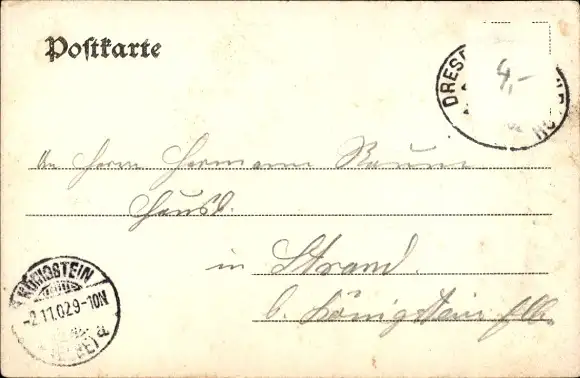 Postkarte
DRESD
4,-
An Herrn Hermann Baum
Hausd.
in Strand
b. Königstein Elbe.
KÖNIGSTEIN
-2.11.02.9-10N
(ELBE) a